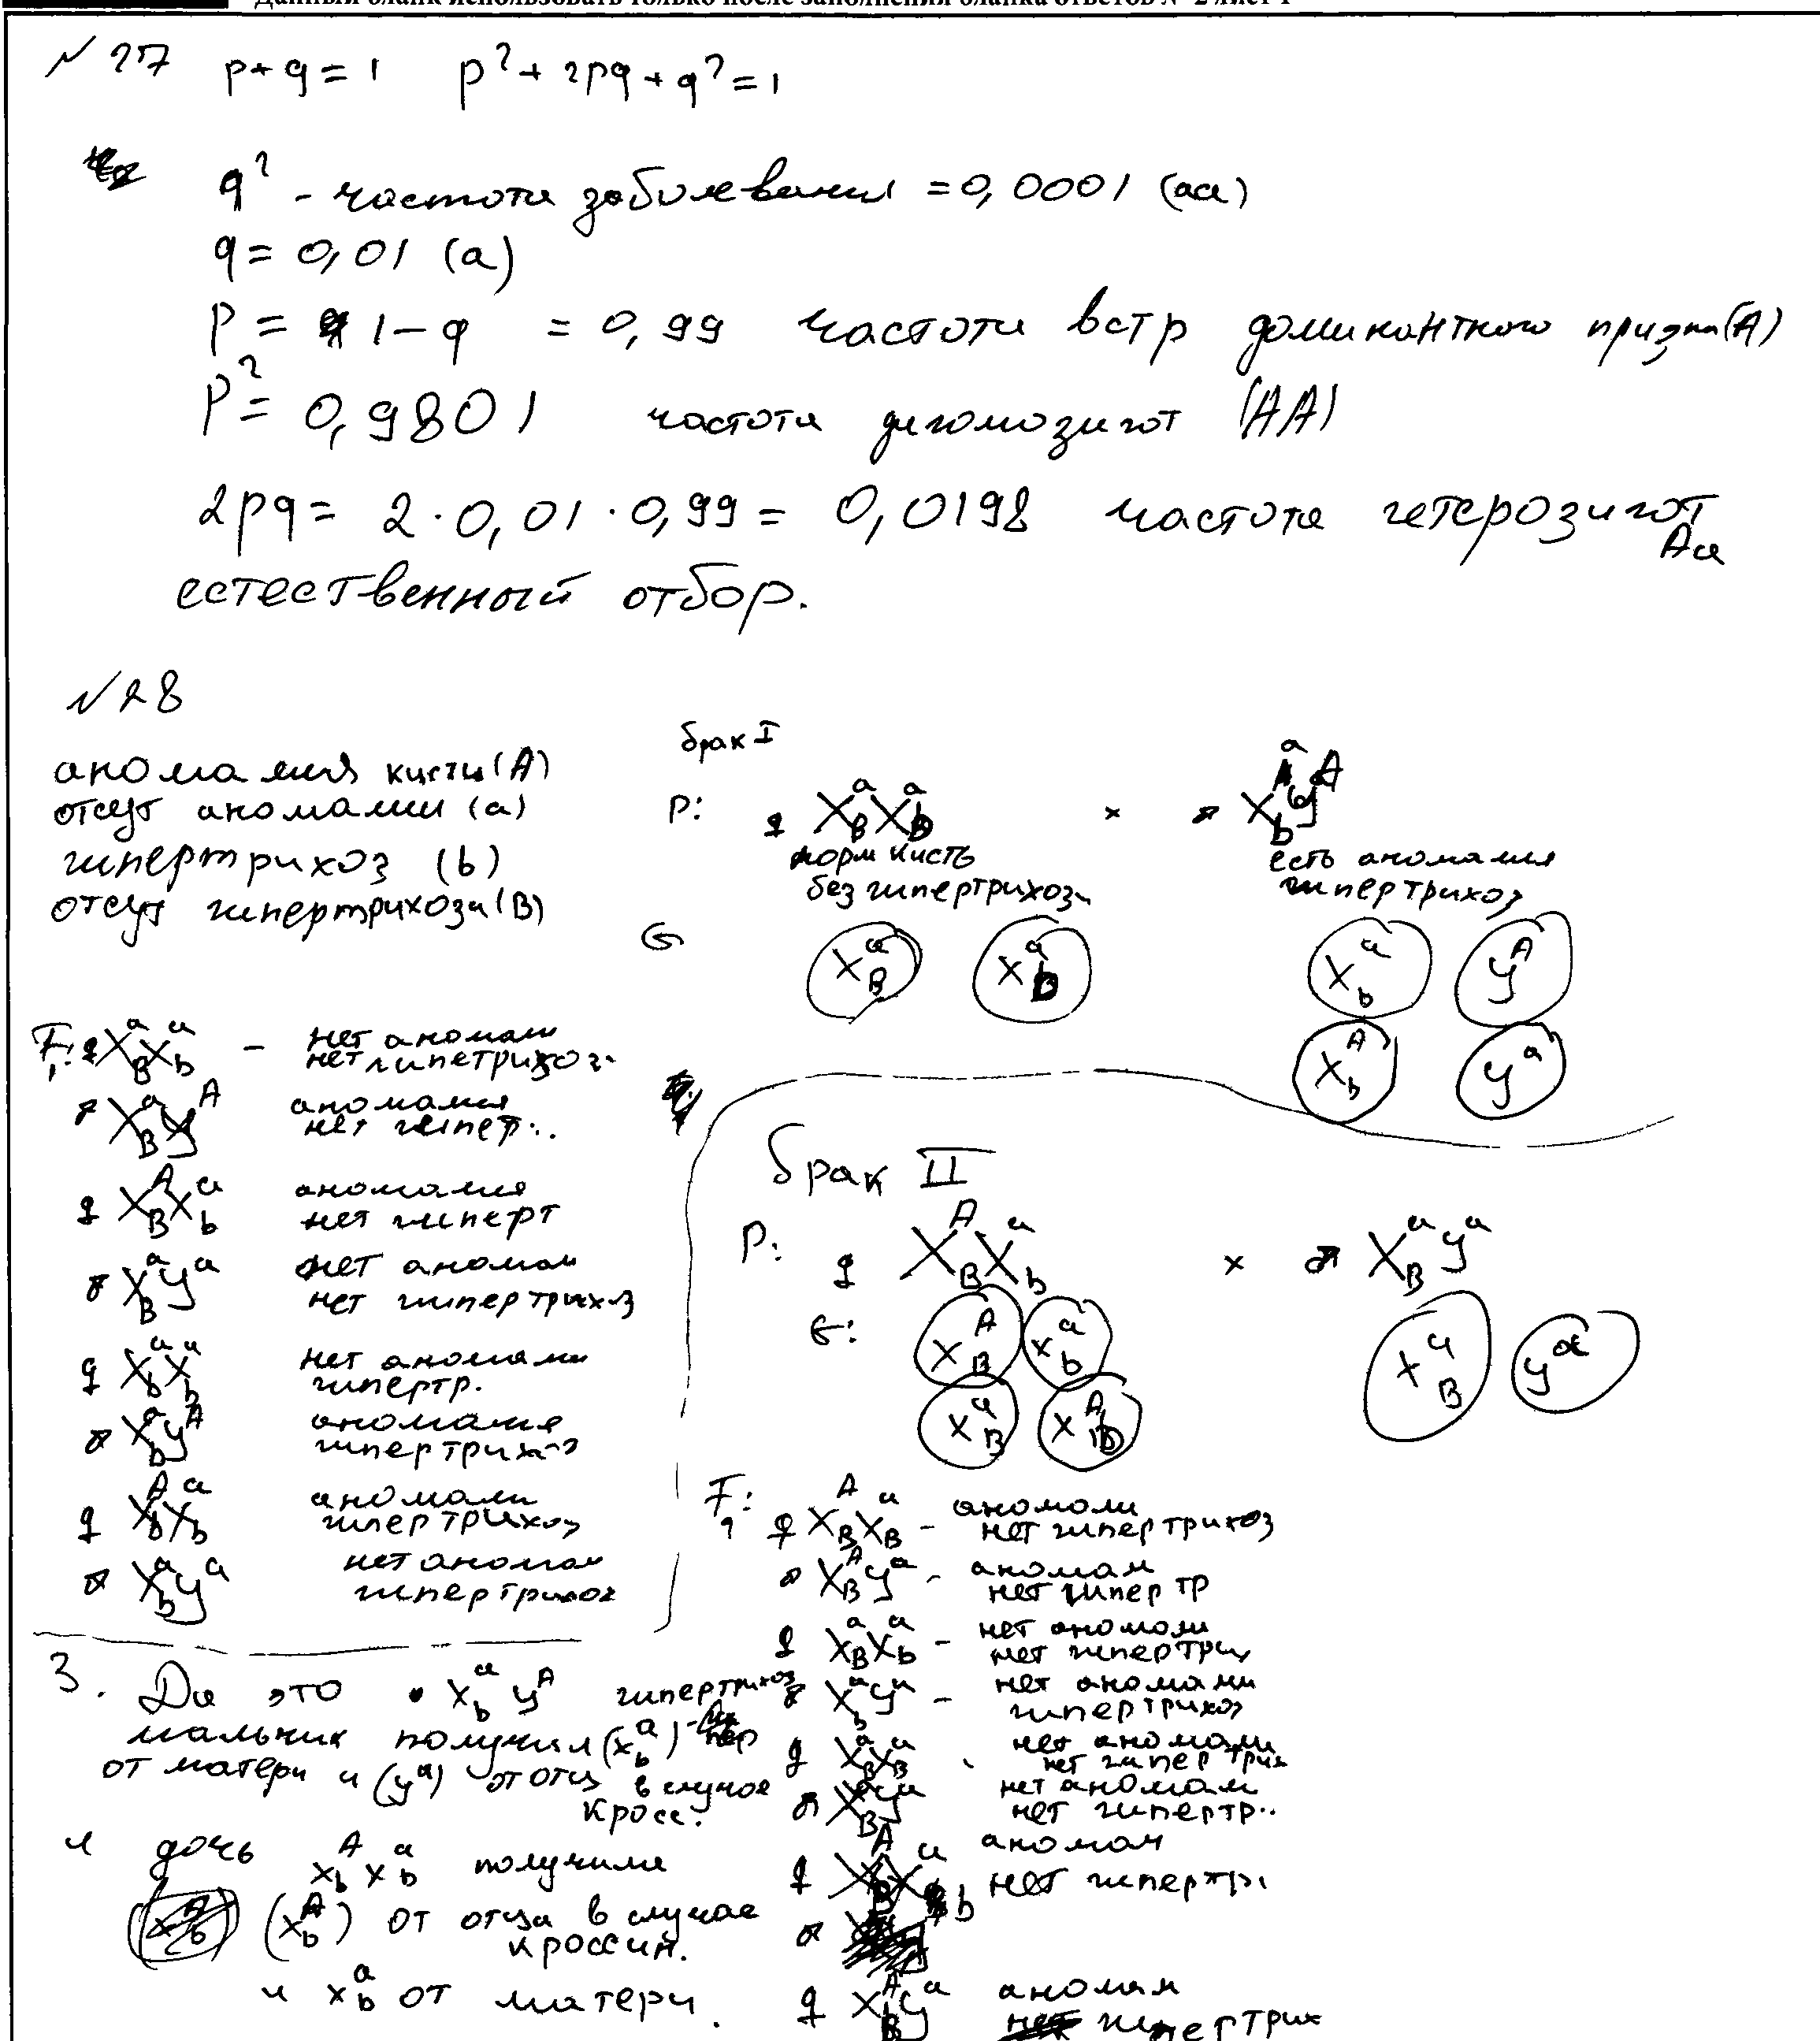 Данный бланк использовать только после заполнения бланка ответов № 2 лист 1
№ 27 p+q=1 p²+2pq+q²=1
q² - частота заболевания =0,0001 (aa)
q=0,01 (a)
p= 1-q =0,99 частота встр доминантного призна(A)
p²= 0,9801 частота дигомозигот (AA)
2pq= 2·0,01·0,99= 0,0198 частота гетерозигот
Aa
естественный отбор.
№28
аномалия кисти(A)
отсут аномалии (a)
гипертрихоз (b)
отсут гипертрихоза(B)
брак I
P: ♀ XᵃBXᵃb × ♂ XᵃbYᴬ
норм кисть
без гипертрихоза
есть аномалия
гипертрихоз
G XᵃB Xᵃb Xᵃb Yᴬ
Xᴬb Yᵃ
F₁: ♀ XᵃBXᵃb - нет аномали
нет гипетрихоза.
♂ XᵃBYᴬ аномалия
нет гипер..
♀ XᴬBXᵃb аномалия
нет гиперт
♂ XᵃBYᵃ нет аномал
нет гипертрихоз
♀ XᵃbXᵃb нет аномалии
гипертр.
♂ XᵃbYᴬ аномалия
гипертрихоз
♀ XᴬbXᵃb аномали
гипертрихоз
♂ XᵃbYᵃ нет аномал
гипертрихоз
брак II
P: ♀ XᴬBXᵃb × ♂ XᵃBYᵃ
G: XᴬB Xᵃb XᵃB Yᵃ
XᵃB Xᴬb
F₁: ♀ XᴬBXᵃB - аномоли
нет гипертрихоз
♂ XᴬBYᵃ - аномал
нет гипертр
♀ XᵃBXᵃb - нет аномоли
нет гипертрих
♂ XᵃbYᵃ - нет аномали
гипертрихоз
♀ XᵃBXᵃB нет аномали
нет гипертрих
♂ XᵃBYᵃ нет аномал
нет гипертр..
♀ XᴬBXᵃb аномал
нет гипертр.
♂
♀ XᴬbYᵃ аномал
гипертрих
3. Да это XᵃbYᴬ гипертрихоз
мальчик получил(Xᵃb)
от матери и (Yᵃ) от отца в случае
кросс.
и дочь XᴬbXᵃb получила
(Xᴬb) от отца в случае
кроссин.
и Xᵃb от матери.